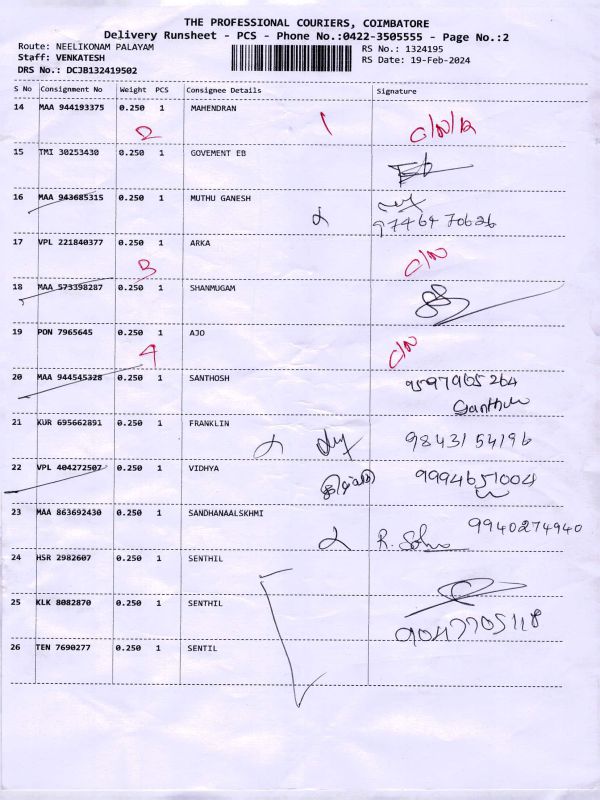 THE PROFESSIONAL COURIERS, COIMBATORE
Delivery Runsheet - PCS - Phone No.:0422-3505555 - Page No.:2
Route: NEELIKONAM PALAYAM
RS No.: 1324195
Staff: VENKATESH
RS Date: 19-Feb-2024
DRS No.: DCJB132419502
S No Consignment No Weight PCS Consignee Details Signature
14 MAA 944193375 0.250 1 MAHENDRAN
2 1 C/N/A
15 TMI 30253430 0.250 1 GOVEMENT EB
Eb
16 MAA 943685315 0.250 1 MUTHU GANESH
9746470626
17 VPL 221840377 0.250 1 ARKA
3 C/N
18 MAA 573398287 0.250 1 SHANMUGAM
19 PON 7965645 0.250 1 AJO
4 C/N
20 MAA 944545328 0.250 1 SANTHOSH 9597965264
21 KUR 695662891 0.250 1 FRANKLIN
9843154196
22 VPL 404272507 0.250 1 VIDHYA 9994651004
23 MAA 863692430 0.250 1 SANDHANAALSKHMI 9940274940
24 HSR 2982607 0.250 1 SENTHIL
25 KLK 8082870 0.250 1 SENTHIL
9047705118
26 TEN 7690277 0.250 1 SENTIL